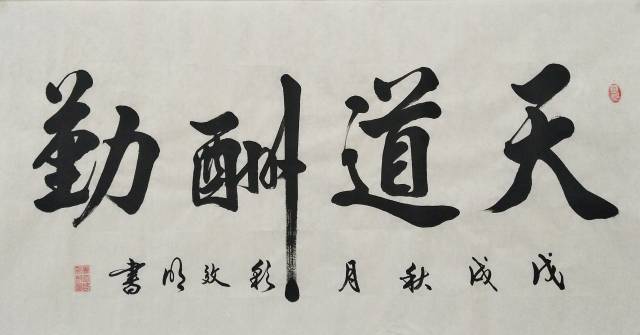 天道酬勤
戊戌秋月彭效明書